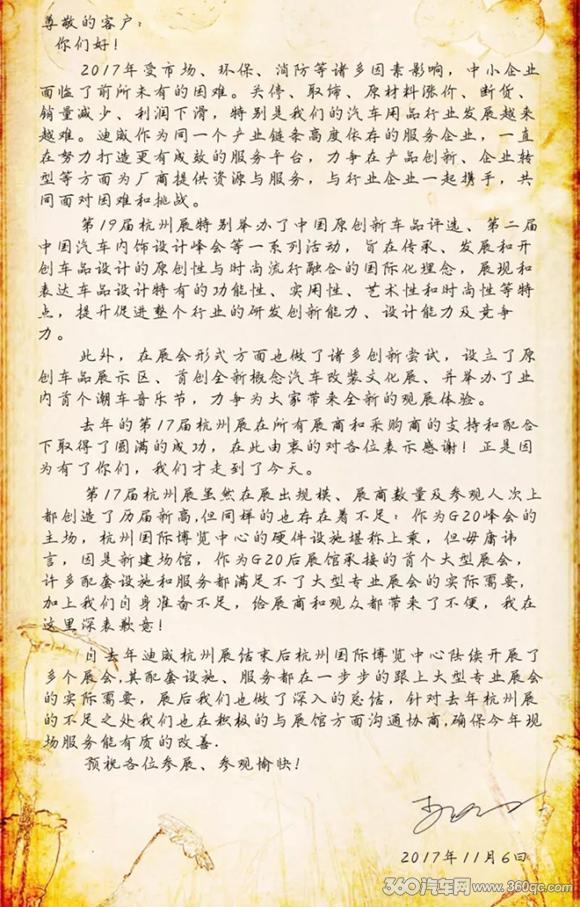 尊敬的客户：
你们好！
2017年受市场、环保、消防等诸多因素影响，中小企业
面临了前所未有的困难。关停、取缔、原材料涨价、断货、
销量减少、利润下滑，特别是我们的汽车用品行业发展越来
越难。迪威作为同一个产业链条高度依存的服务企业，一直
在努力打造更有成效的服务平台，力争在产品创新、企业转
型等方面为厂商提供资源与服务，与行业企业一起携手，共
同面对困难和挑战。
第19届杭州展特别举办了中国原创新车品评选、第二届
中国汽车内饰设计峰会等一系列活动，旨在传承、发展和开
创车品设计的原创性与时尚流行融合的国际化理念，展现和
表达车品设计特有的功能性、实用性、艺术性和时尚性等特
点，提升促进整个行业的研发创新能力、设计能力及竞争
力。
此外，在展会形式方面也做了诸多创新尝试，设立了原
创车品展示区、首创全新概念汽车改装文化展、并举办了业
内首个潮车音乐节，力争为大家带来全新的观展体验。
去年的第17届杭州展在所有展商和采购商的支持和配合
下取得了圆满的成功，在此由衷的对各位表示感谢！正是因
为有了你们，我们才走到了今天。
第17届杭州展虽然在展出规模、展商数量及参观人次上
都创造了历届新高,但同样的也存在着不足：作为G20峰会的
主场，杭州国际博览中心的硬件设施堪称上乘，但毋庸讳
言，因是新建场馆，作为G20后展馆承接的首个大型展会，
许多配套设施和服务都满足不了大型专业展会的实际需要，
加上我们自身准备不足，给展商和观众都带来了不便，我在
这里深表歉意！
自去年迪威杭州展结束后杭州国际博览中心陆续开展了
多个展会,其配套设施、服务都在一步步的跟上大型专业展会
的实际需要，展后我们也做了深入的总结，针对去年杭州展
的不足之处我们也在积极的与展馆方面沟通协商,确保今年现
场服务能有质的改善.
预祝各位参展、参观愉快！
2017年11月6日
360汽车网 www.360qc.com